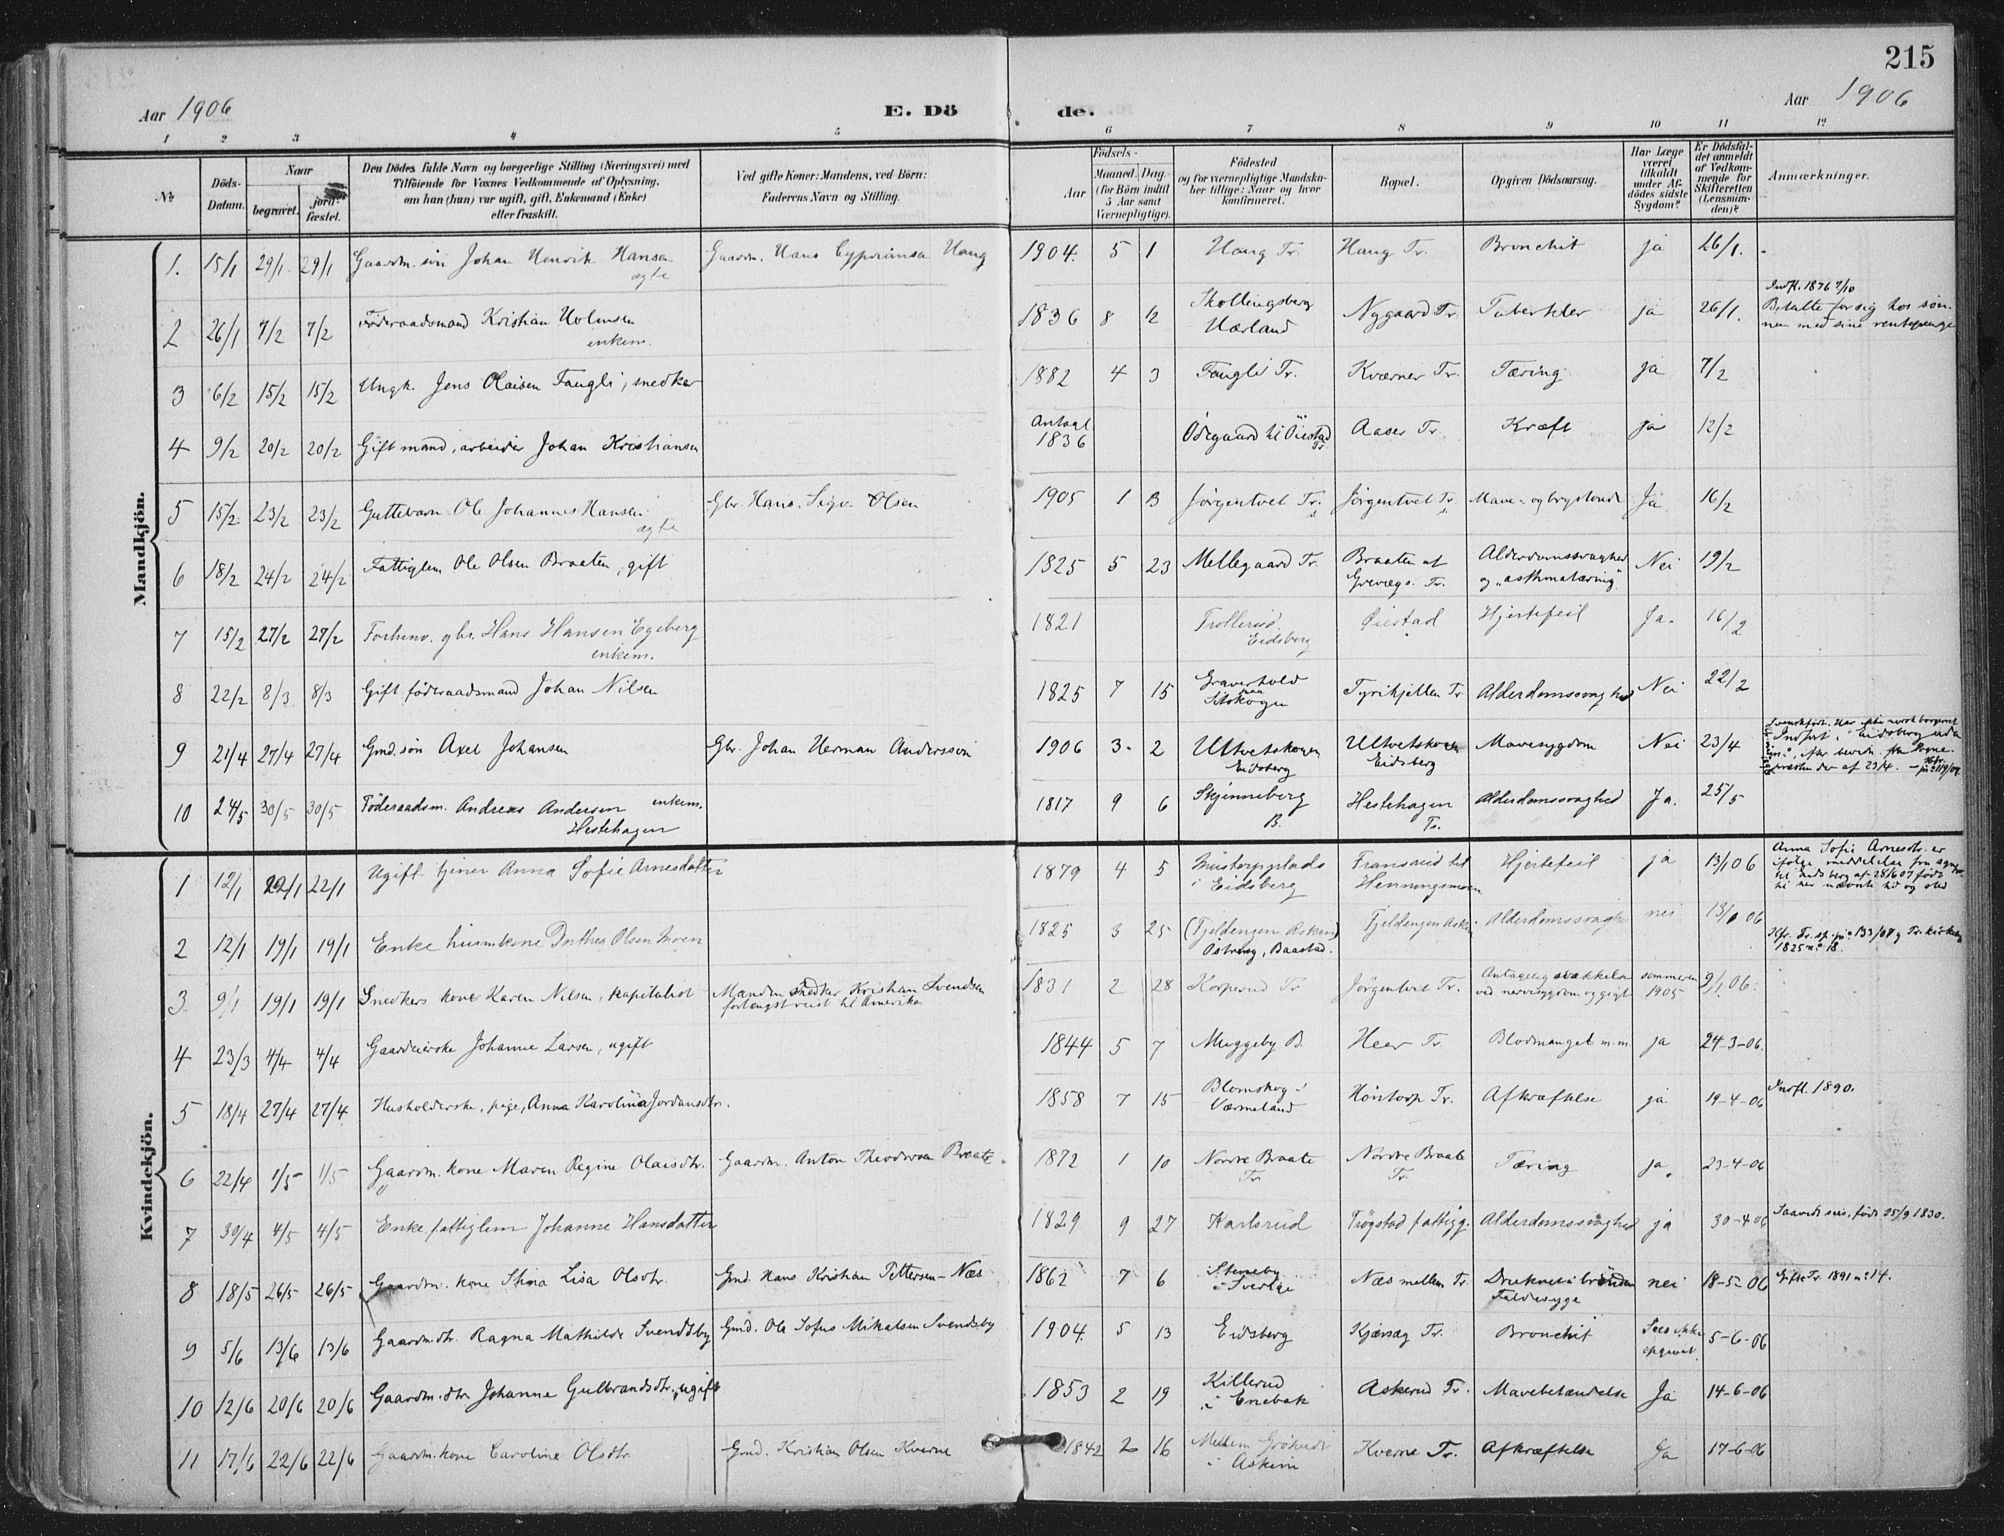 215
Aar 1906 E. Dö de. Aar 1906
1 2 3 4 5 6 7 8 9 10 11 12
№
Döds-Datum.
Naar
begravet.
jord-fæstet.
Den Dödes fulde Navn og borgerlige Stilling (Næringsvei) med
Tilföiende for Voxnes Vedkommende af Oplysning,
om han (hun) var ugift, gift, Enkemand (Enke)
eller fraskilt.
Ved gifte Koner: Mandens, ved Börn:
Faderens Navn og Stilling.
Födsels-
Aar
Maaned. Dag
(for Börn indtil
5 Aar samt
Værnepligtige).
Födested
og for værnepligtige Mandska-
ber tillige: Naar og hvor
konfirmeret.
Bopæl.
Opgiven Dödsaarsag.
Har Læge
været
tilkaldt
under Af-
dödes sidste
Sygdom?
Er Dödsfal-
det anmeldt
af Vedkom-
mende for
Skifteretten
(Lensman-
den)?
Anmærkninger.
Mandkjön.
1. 15/1 29/1 29/1 Gaardm. sön Johan Henrik Hansen ægte Gaardm. Hans Cypriansen Haug 1904. 5 1 Haug Tr. Haug Tr. Bronchit ja 26/1.
2 26/1 7/2 7/2 Föderaadsmand Kristian Holmsen enkem. 1836 8 12 Skollingsberg Hærland Nygaard Tr. Tuberkler ja 26/1. Indfl. 1876 7/10
Betalte for sig hos søn-
nen med sine rentepenge
3 6/2 15/2 15/2 Ungk. Jens Olaisen Faugli, snedker 1882 4 3 Faugli Tr. Kværner Tr. Tæring ja 7/2
4 9/2 20/2 20/2 Gift mand, arbeider Johan Kristiansen Antagl. 1836 Ödegaard til Öiestad Tr. Aaser Tr. Kræft ja 12/2
5 15/2 23/2 23/2 Guttebarn Ole Johannes Hansen ægte Gbr. Hans Olsen 1905 1 13 Jörgentvet Tr. Jörgentvet Tr. Mave- og brystonde Ja 16/2
6 18/2 24/2 24/2 Fattiglem Ole Olsen Braaten, gift 1825 5 23 Mellegaard Tr. Braaten af Tr. Alderdomssvaghed og "asthmatæring" Nei 19/2
7 15/2 27/2 27/2 Forhenv. gbr. Hans Hansen Egeberg enkem. 1821 Trollerud Eidsberg Øiestad Hjertefeil Ja. 16/2
8 22/2 8/3 8/3 Gift föderaadsmand Johan Nilsen 1825 7 15 Graverhold paa Tyrikjellen Tr Alderdomssvaghed Nei 22/2
9 21/4 27/4 27/4 Gmd. sön Axel Johansen Gbr. Johan Herman Andersson 1906 3 2 Ultvetskogen Eidsberg Ultvetskogen Eidsberg Mavesygdom Nei 23/4 Svenskfödt. Har ikke norsk borgerret
10 24/5 30/5 30/5 Föderaadsm. Andreas Andersen enkem. Hestehagen 1817 9 6 Skjønneberg B. Hestehagen Tr. Alderdomssvaghed Ja. 25/5
Kvindekjön.
1 12/1 22/1 22/1 Ugift tjener Anna Sofie Arnesdatter 1879 4 5 i Eidsberg Fransrud til Henningsmoen Hjertefeil ja 13/1 06 Anna Sofie Arnesdtr. er
ifölge meddelelse fra sogne-
til Eidsberg af 28/6 07 födt
til her nævnte tid og sted
2 12/1 19/1 19/1 Enke husmkone Dorthea Olsen Moen 1825 3 25 (Fjeldengen Askim) Östereng, Baastad. Fjeldengen Askim Alderdomssvaghed nei 13/1 06 Kfr. Tr. sp. jn° 133/08 og Tr. kirkebog
1825 n° 18.
3 9/1 19/1 19/1 Snedkers kone Karen Nilsen, kapitalist Manden snedker Kristian Svendsen forlængst reist til Amerika 1831 2 28 Korperud Tr Jörgentvet Tr. Antagelig ved nervesygdom og gigt sommeren 1905 9/1 06.
4 23/3 4/4 4/4 Gaardeierske Johanne Larsen, ugift 1844 5 7 Muggeby B. Heer Tr. Blodmangel m.m. ja 24-3-06.
5 18/4 27/4 27/4 Husholderske, pige, Anna Karolina Jordansdtr. 1858 7 15 Blomskog i Værmeland Höntorp Tr. Afkræftelse ja 19-4-06 Indfl. 1890.
6 22/4 1/5 1/5 Gaardm. kone Maren Regine Olaisdtr. Gaardm. Anton Theodorsen Braate. 1872 1 10 Nordre Braate Tr. Nordre Braate Tr. Tæring ja. 23-4-06
7 30/4 4/5 4/5 Enke, fattiglem Johanne Hansdatter 1829 9 27 Karlsrud Trögstad fattigg. Alderdomssvaghed ja 30-4-06 födt 25/9 1830.
8 18/5 26/5 26/5 Gaardm. kone Stina Lisa Olsdtr. Gmd. Hans Kristian Pettersen Næs 1862 7 6 Steneby i Sverige Næs mellem Tr. Druknet i brönden Faldesyge nei 18-5-06 Gifte Tr. 1891 n° 14.
9 5/6 13/6 13/6 Gaardm. dtr. Ragna Mathilde Svendsby Gmd. Ole Sofus Mikalsen Svendsby 1904. 5 13 Eidsberg Kjærsæg Tr. Bronchit Sees ikke opgivet 5-6-06
10 12/6 20/6 20/6 Gaardm. dtr. Johanne Gulbrandsdtr., ugift 1853 2 19 Killerud i Enebak Askerud Tr. Mavebetændelse Ja 14-6-06
11 17/6 22/6 22/6 Gaardm. kone Caroline Olsdtr. Gmd. Kristian Olsen Kverne 1842 2 16 Mellem Gröterud i Askim Kverne Tr. Afkræftelse Ja 17-6-06